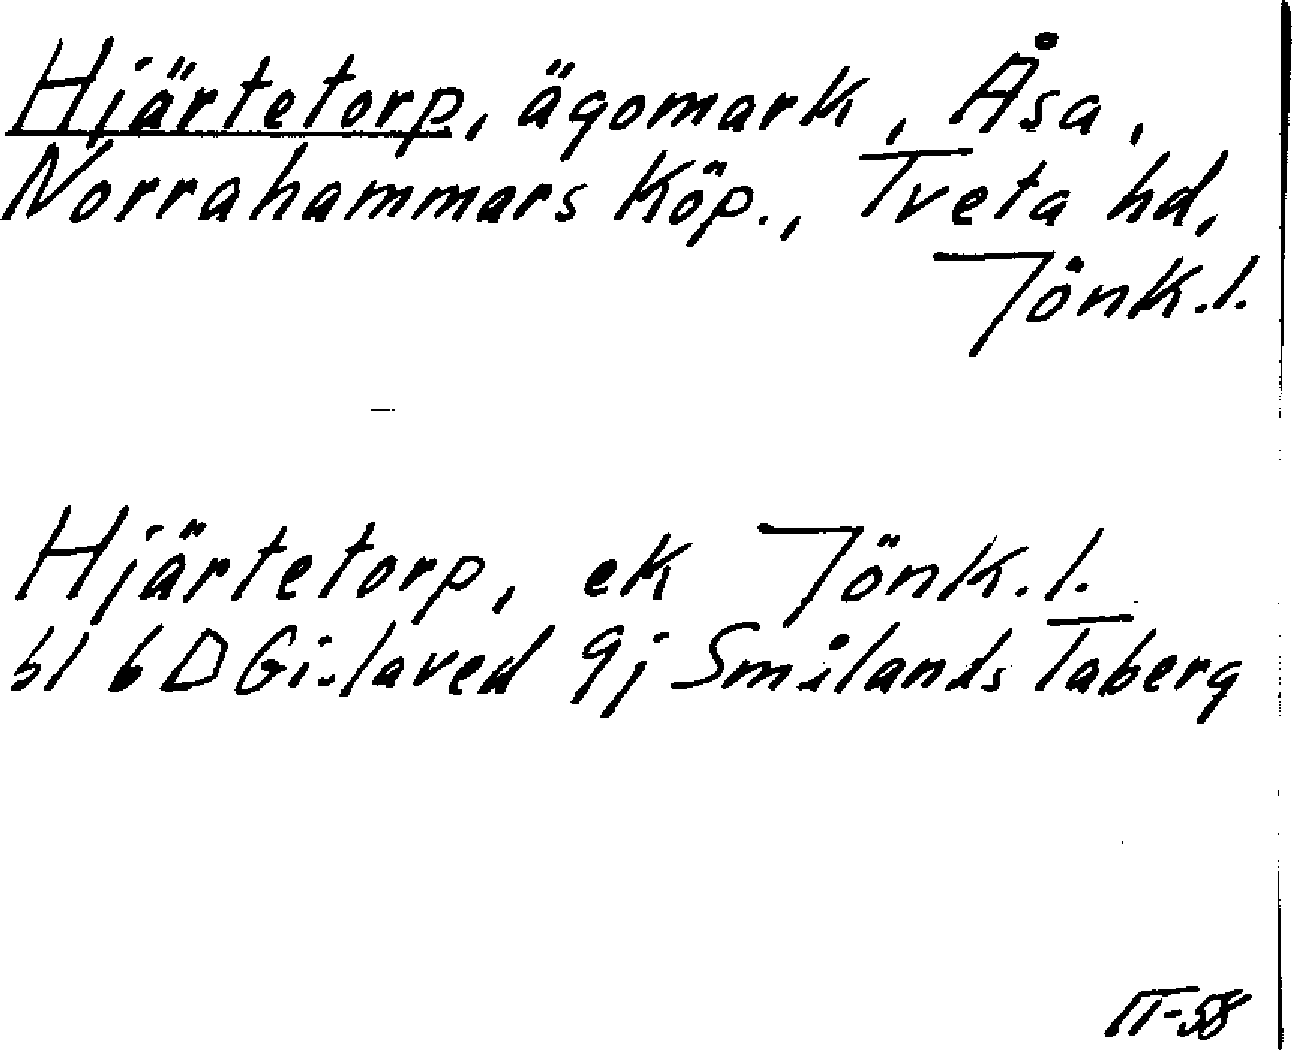 Hjärtetorp, ägomark, Åsa,
Norrahammars Köp., Tveta hd,
Jönk.l.
Hjärtetorp, ek Jönk.l.
bl 6D Gislaved 9j Smålands Taberg
IT-58